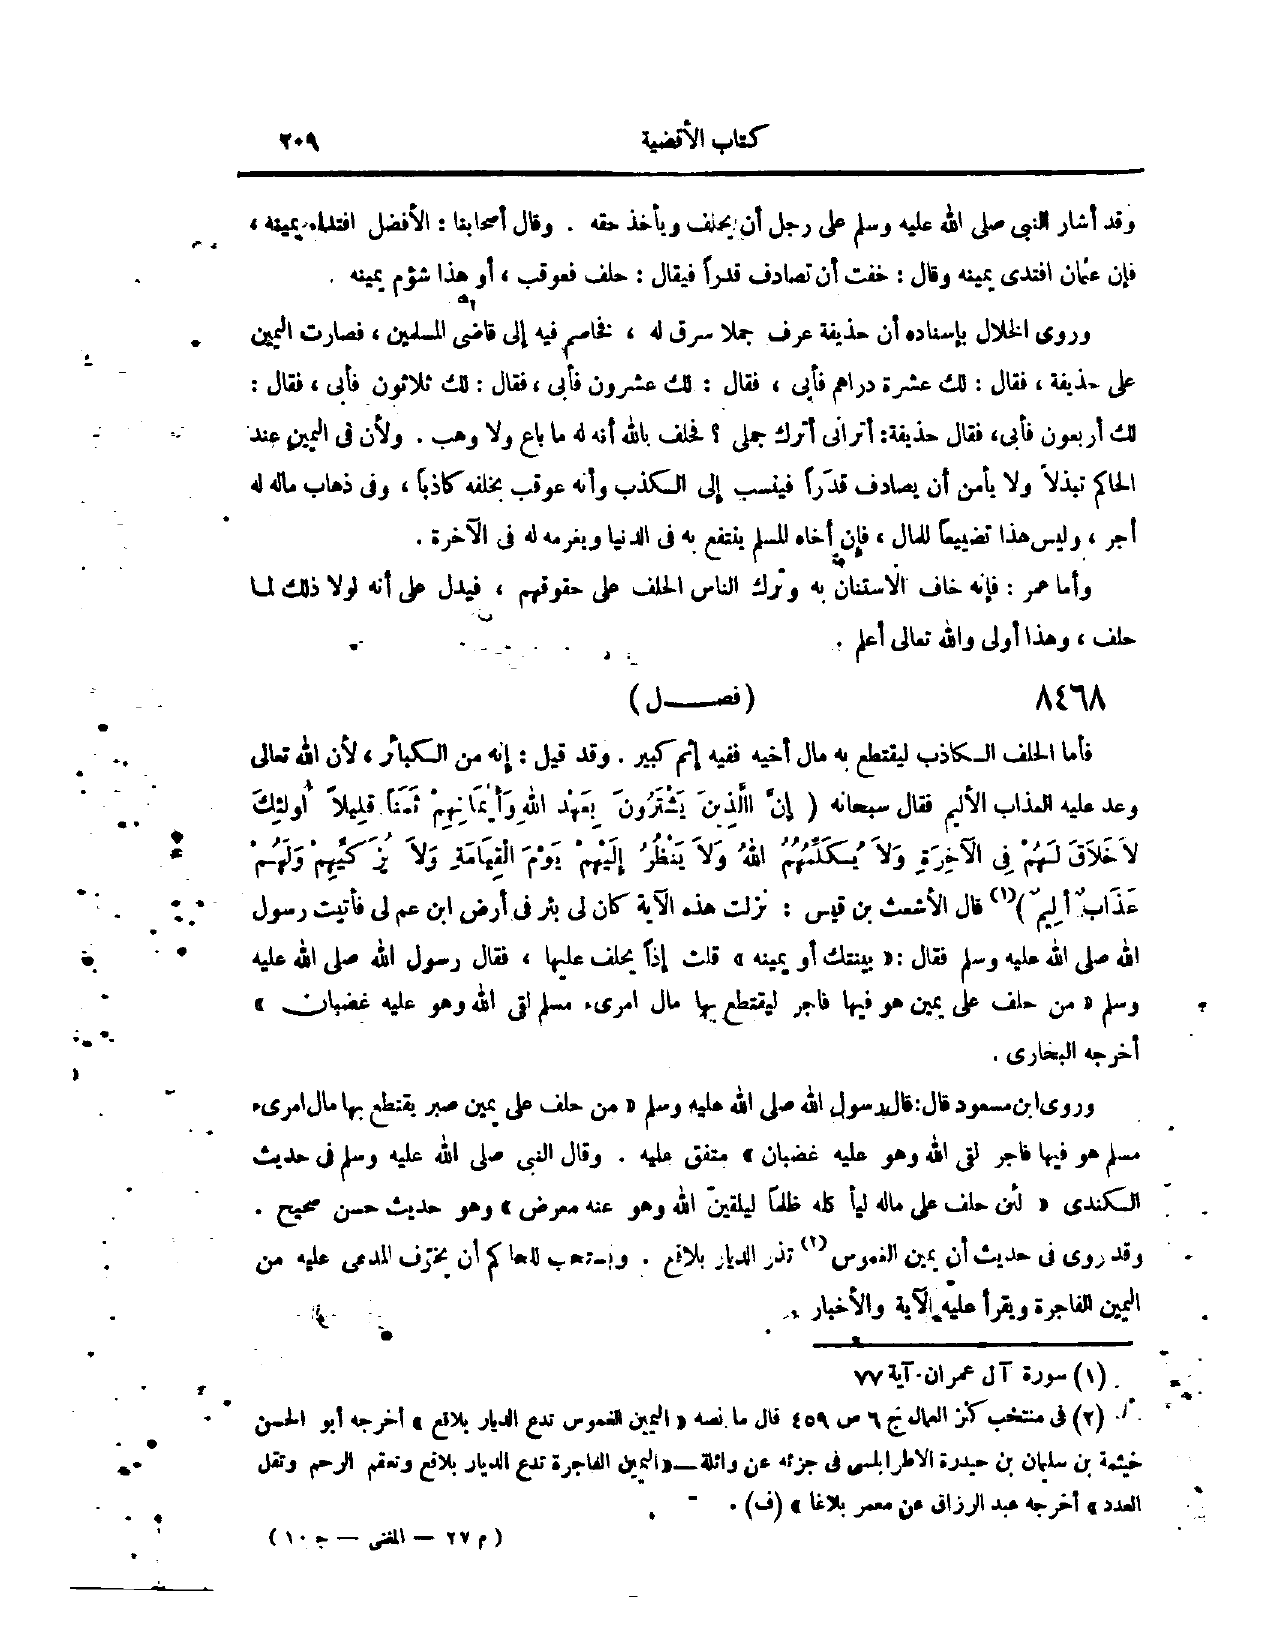 كتاب الأقضية ٢٠٩
وقد أشار النبى صلى الله عليه وسلم على رجل أن يحلف ويأخذ حقه . وقال أصحابنا : الأفضل افتداء يمينه ،
فإن عثمان افتدى يمينه وقال : خفت أن تصادف قدراً فيقال : حلف فعوقب ، أو هذا شؤم يمينه .
وروى الخلال بإسناده أن حذيفة عرف جملا سرق له ، فخاصم فيه إلى قاضى المسلمين ، فصارت اليمين
على حذيفة ، فقال : لك عشرة دراهم فأبى ، فقال : لك عشرون فأبى ، فقال : لك ثلاثون فأبى ، فقال :
لك أربعون فأبى، فقال حذيفة: أترانى أترك جملى ؟ فحلف بالله أنه له ما باع ولا وهب . ولأن فى اليمين عند
الحاكم تبذلاً ولا يأمن أن يصادف قدَراً فينسب إلى الكذب وأنه عوقب بحلفه كاذباً ، وفى ذهاب ماله له
أجر ، وليس هذا تضييعاً للمال ، فإن أخاه المسلم ينتفع به فى الدنيا ويغرمه له فى الآخرة .
وأما عمر : فإنه خاف الاستنان به وترك الناس الحلف على حقوقهم ، فيدل على أنه لولا ذلك لما
حلف ، وهذا أولى والله تعالى أعلم .
٨٤٦٨ (فصـــل)
فأما الحلف الكاذب ليقتطع به مال أخيه ففيه إثم كبير . وقد قيل : إنه من الكبائر ، لأن الله تعالى
وعد عليه العذاب الأليم فقال سبحانه ( إِنَّ الَّذِينَ يَشْتَرُونَ بِعَهْدِ اللهِ وَأَيْمَانِهِمْ ثَمَنًا قَلِيلاً أُولَئِكَ
لاَ خَلاَقَ لَهُمْ فِى الْآخِرَةِ وَلاَ يُكَلِّمُهُمُ اللهُ وَلاَ يَنْظُرُ إِلَيْهِمْ يَوْمَ الْقِيَامَةِ وَلاَ يُزَكِّيهِمْ وَلَهُمْ
عَذَابٌ أَلِيمٌ )(١) قال الأشعث بن قيس : نزلت هذه الآية كان لى بئر فى أرض ابن عم لى فأتيت رسول
الله صلى الله عليه وسلم فقال :« بينتك أو يمينه » قلت إذاً يحلف عليها ، فقال رسول الله صلى الله عليه
وسلم « من حلف على يمين هو فيها فاجر ليقتطع بها مال امرىء مسلم لقى الله وهو عليه غضبان »
أخرجه البخارى .
وروى ابن مسعود قال: قال رسول الله صلى الله عليه وسلم « من حلف على يمين صبر يقتطع بها مال امرىء
مسلم هو فيها فاجر لقى الله وهو عليه غضبان » متفق عليه . وقال النبى صلى الله عليه وسلم فى حديث
الكندى « لئن حلف على ماله ليأكله ظلماً ليلقينّ الله وهو عنه معرض » وهو حديث حسن صحيح .
وقد روى فى حديث أن يمين الغموس(٢) تذر الديار بلاقع . ويستحب للحاكم أن يخوّف المدعى عليه من
اليمين الفاجرة ويقرأ عليه الآية والأخبار .
(١) سورة آل عمران آية ٧٧
(٢) فى منتخب كنز العمال ج ٦ ص ٤٥٩ قال ما نصه « اليمين الغموس تدع الديار بلاقع » أخرجه أبو الحسن
خيثمة بن سليمان بن حيدرة الاطرابلسى فى جزئه عن واثلة – «اليمين الفاجرة تدع الديار بلاقع وتعقم الرحم وتقل
العدد » أخرجه عبد الرزاق عن معمر بلاغا » (ف) .
( م ٢٧ — المغنى — ج ١٠ )